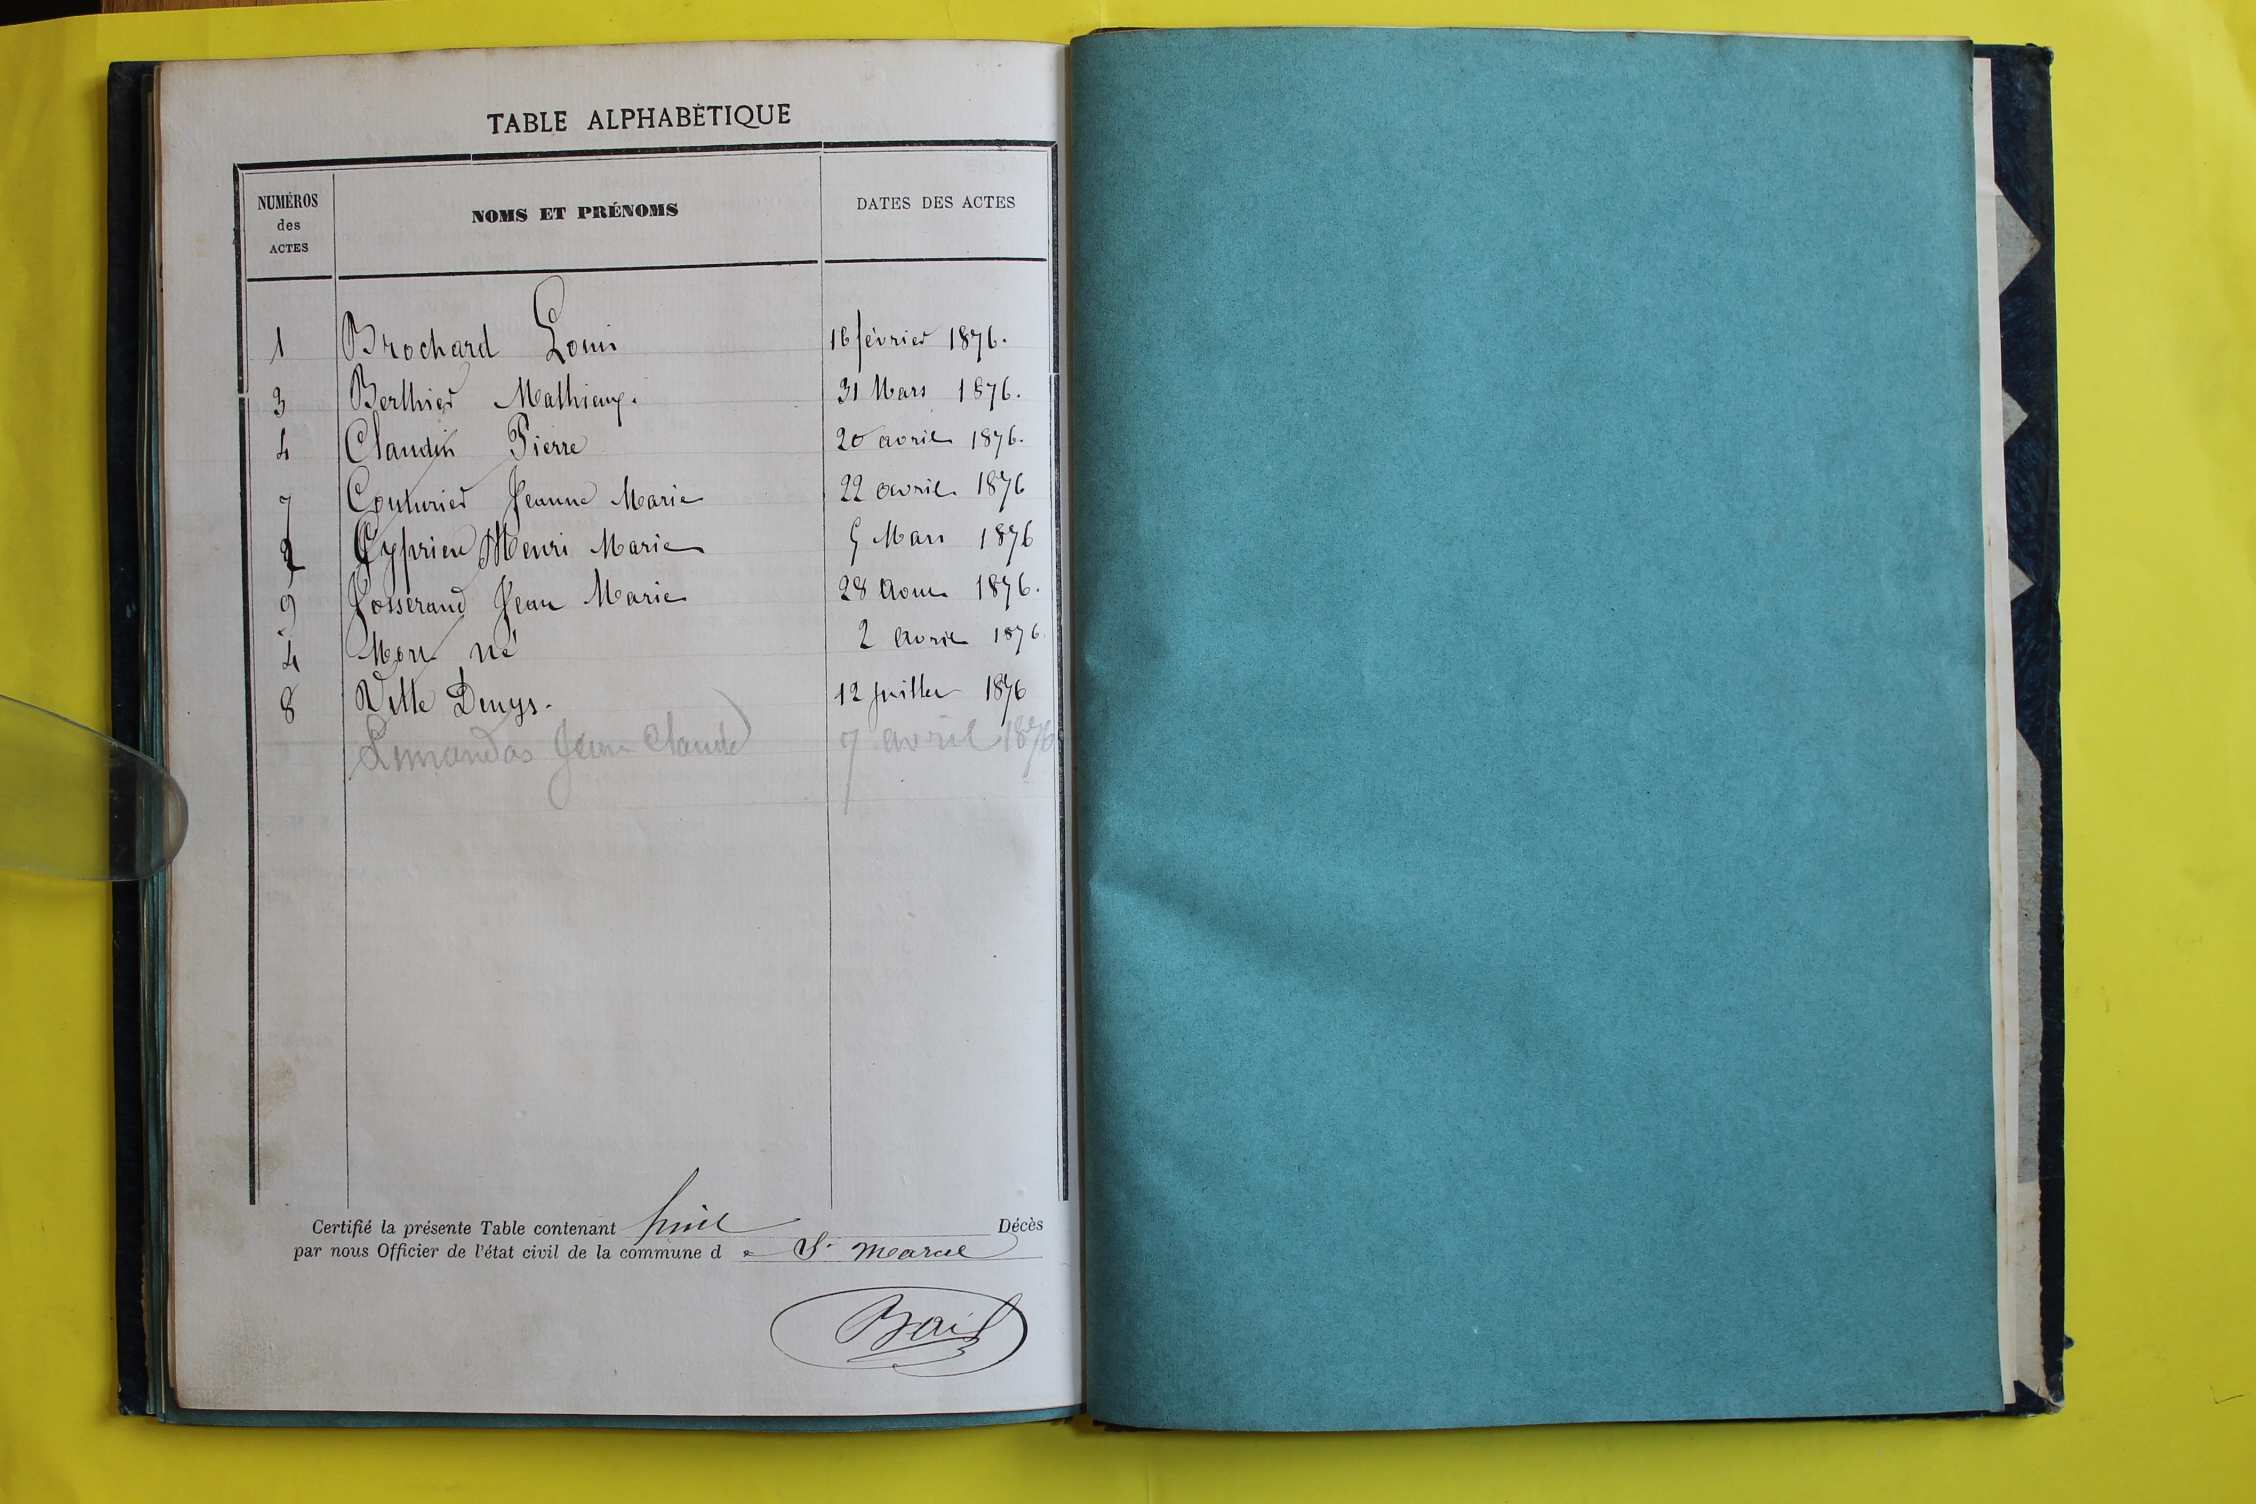 TABLE ALPHABÉTIQUE
NUMÉROS des ACTES NOMS ET PRÉNOMS DATES DES ACTES
1 Brochard Louis 16 février 1876.
3 Berthier Mathieu. 31 Mars 1876.
4 Claudin Pierre 20 avril 1876.
7 Couturier Jeanne Marie 22 avril 1876
2 Cyprien Henri Marie 5 Mars 1876
9 Josserand Jean Marie 28 Aout 1876.
4 Mort né 2 avril 1876.
8 Vitte Denys. 12 juillet 1876
Limandas Jean Claude 7 avril 1876
Certifié la présente Table contenant huit Décès
par nous Officier de l'état civil de la commune d e St Marcel